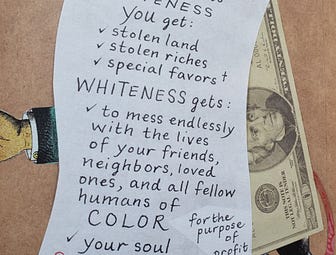 WHITENESS
You get:
✓ stolen land
✓ stolen riches
✓ special favors †
WHITENESS gets:
✓ to mess endlessly
with the lives
of your friends,
neighbors, loved
ones, and all fellow
humans of
COLOR
for the
purpose
of
profit
✓ your soul
THIS NOTE
IS LEGAL TENDER